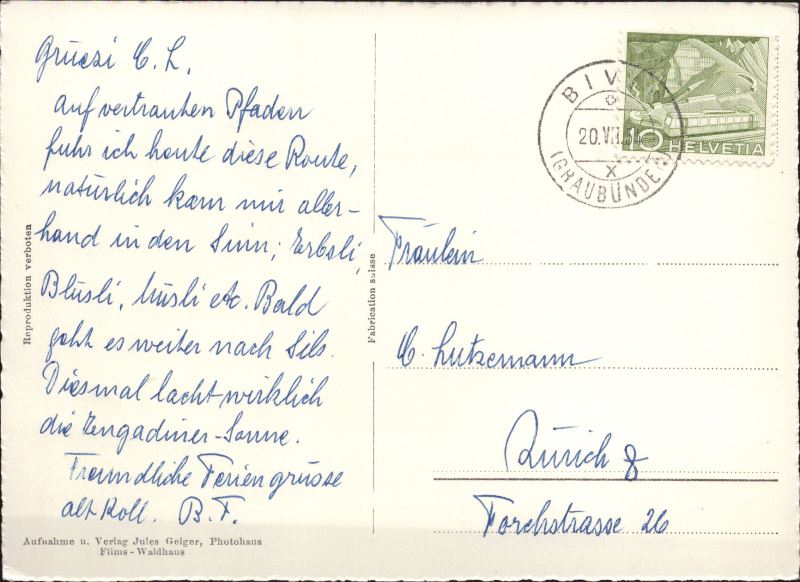 Grüezi C. L.
auf vertrauten Pfaden
fuhr ich heute diese Route,
natürlich kam mir aller-
hand in den Sinn; Erbsli,
Blüsli, Müsli etc. Bald
geht es weiter nach Sils.
Diesmal lacht wirklich
die Engadiner-Sonne.
Freundliche Feriengrüsse
alt Koll. B. F.
Aufnahme u. Verlag Jules Geiger, Photohaus
Flims - Waldhaus
Reproduktion verboten
Fabrication suisse
BIVIO
20.VII.54
X
(GRAUBÜNDEN)
10 HELVETIA
Fräulein
C. Lutzemann
Zürich 8
Forchstrasse 26